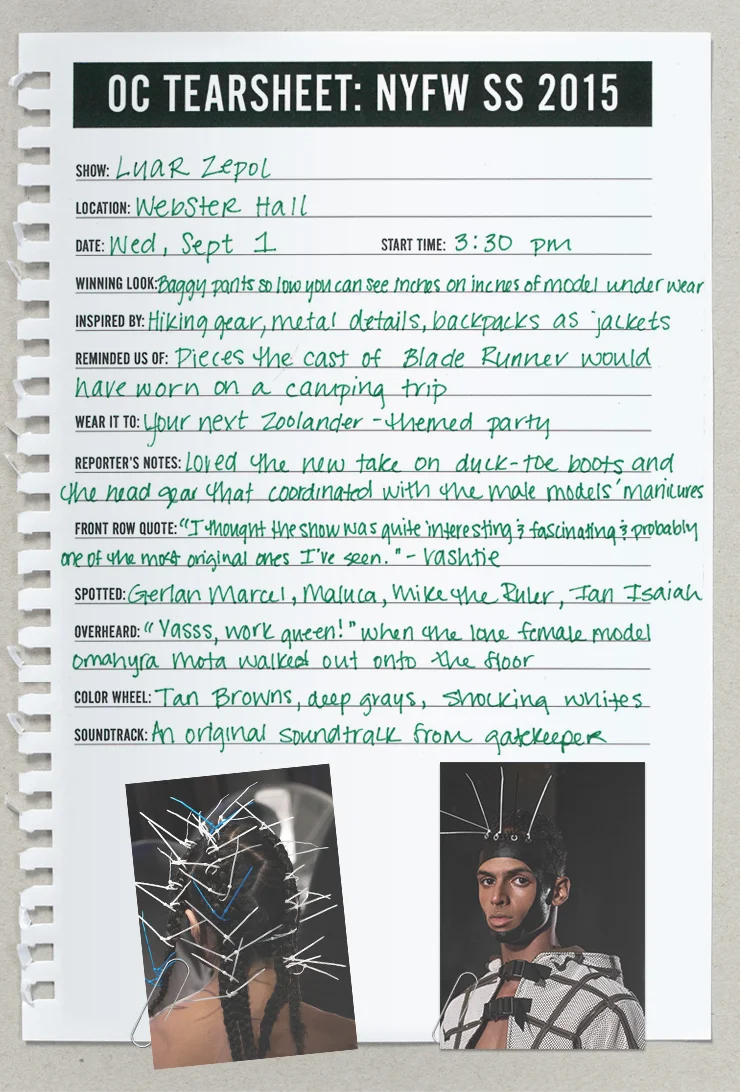 OC TEARSHEET: NYFW SS 2015
SHOW: LUAR Zepol
LOCATION: Webster Hall
DATE: Wed, Sept 1 START TIME: 3:30 pm
WINNING LOOK: Baggy pants so low you can see inches on inches of model underwear
INSPIRED BY: Hiking gear, metal details, backpacks as jackets
REMINDED US OF: Pieces the cast of Blade Runner would
have worn on a camping trip
WEAR IT TO: Your next Zoolander-themed party
REPORTER'S NOTES: Loved the new take on duck-toe boots and
the head gear that coordinated with the male models' manicures
FRONT ROW QUOTE: "I thought the show was quite interesting & fascinating & probably
one of the most original ones I've seen." - Vashtie
SPOTTED: Gerlan Marcel, Maluca, Mike the Ruler, Ian Isaiah
OVERHEARD: "Yasss, work queen!" when the lone female model
Omahyra Mota walked out onto the floor
COLOR WHEEL: Tan Browns, deep grays, shocking whites
SOUNDTRACK: An original soundtrack from gatekeeper